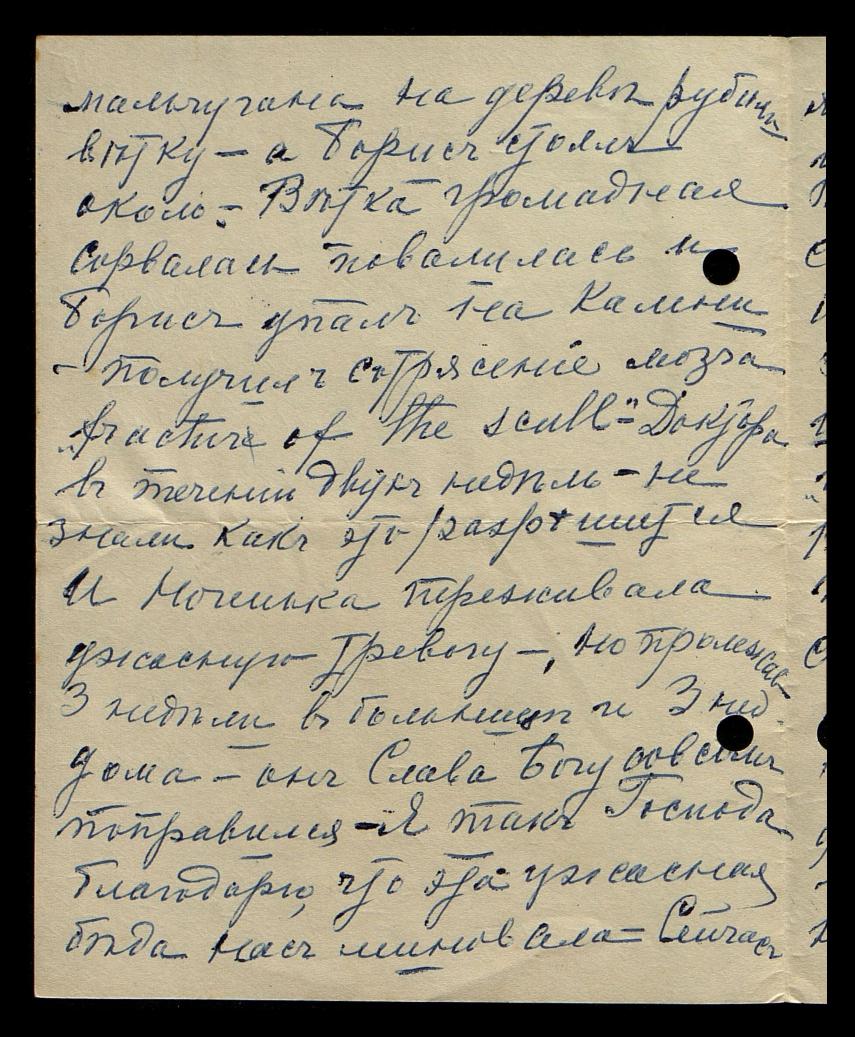 мальчугана на деревѣ рубили
вѣтку – а Борисъ стоялъ
около. – Вѣтка громадная
сорвалась повалилась и
Борисъ упалъ на Камни
– получилъ сотрясеніе мозга
„fracture of the scull" – Доктора
въ теченіи двухъ недѣль – не
знали какъ это разрѣшится
И Ноченька переживала
ужасную тревогу –, но пролежав
3 недѣли въ больницѣ и 3 нед.
дома – онъ Слава Богу совсемъ
поправился – Я такъ Господа
благодарю, что эта ужасная
бѣда насъ миновала – Сейчасъ